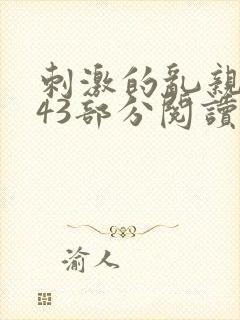 刺激的亂親
43部分閱讀
渝人